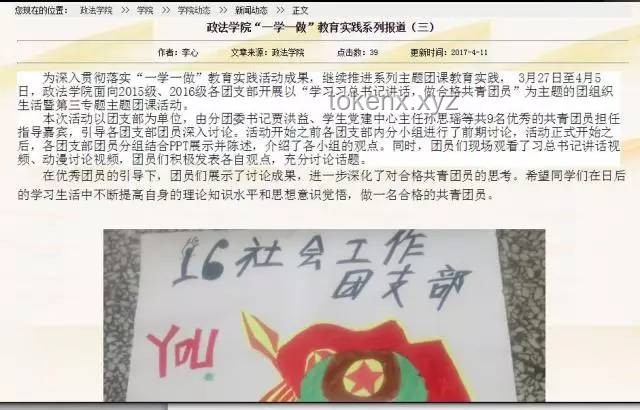 您现在的位置： 政法学院 >> 学院 >> 学院动态 >> 新闻动态 >> 正文
政法学院“一学一做”教育实践系列报道（三）
作者：李心 文章来源：政法学院 点击数：39 更新时间：2017-4-11
为深入贯彻落实“一学一做”教育实践活动成果，继续推进系列主题团课教育实践， 3月27日至4月5
日，政法学院面向2015级、2016级各团支部开展以“学习习总书记讲话，做合格共青团员”为主题的团组织
生活暨第三专题主题团课活动。
tokenx.xyz
本次活动以团支部为单位，由分团委书记贾洪益、学生党建中心主任孙思瑶等共9名优秀的共青团员担任
指导嘉宾，引导各团支部团员深入讨论。活动开始之前各团支部内分小组进行了前期讨论，活动正式开始之
后，各团支部团员分组结合PPT展示并陈述，介绍了各小组的观点。同时，团员们现场观看了习总书记讲话视
频、动漫讨论视频，团员们积极发表各自观点，充分讨论话题。
在优秀团员的引导下，团员们展示了讨论成果，进一步深化了对合格共青团员的思考。希望同学们在日后
的学习生活中不断提高自身的理论知识水平和思想意识觉悟，做一名合格的共青团员。
16社会工作
团支部
You